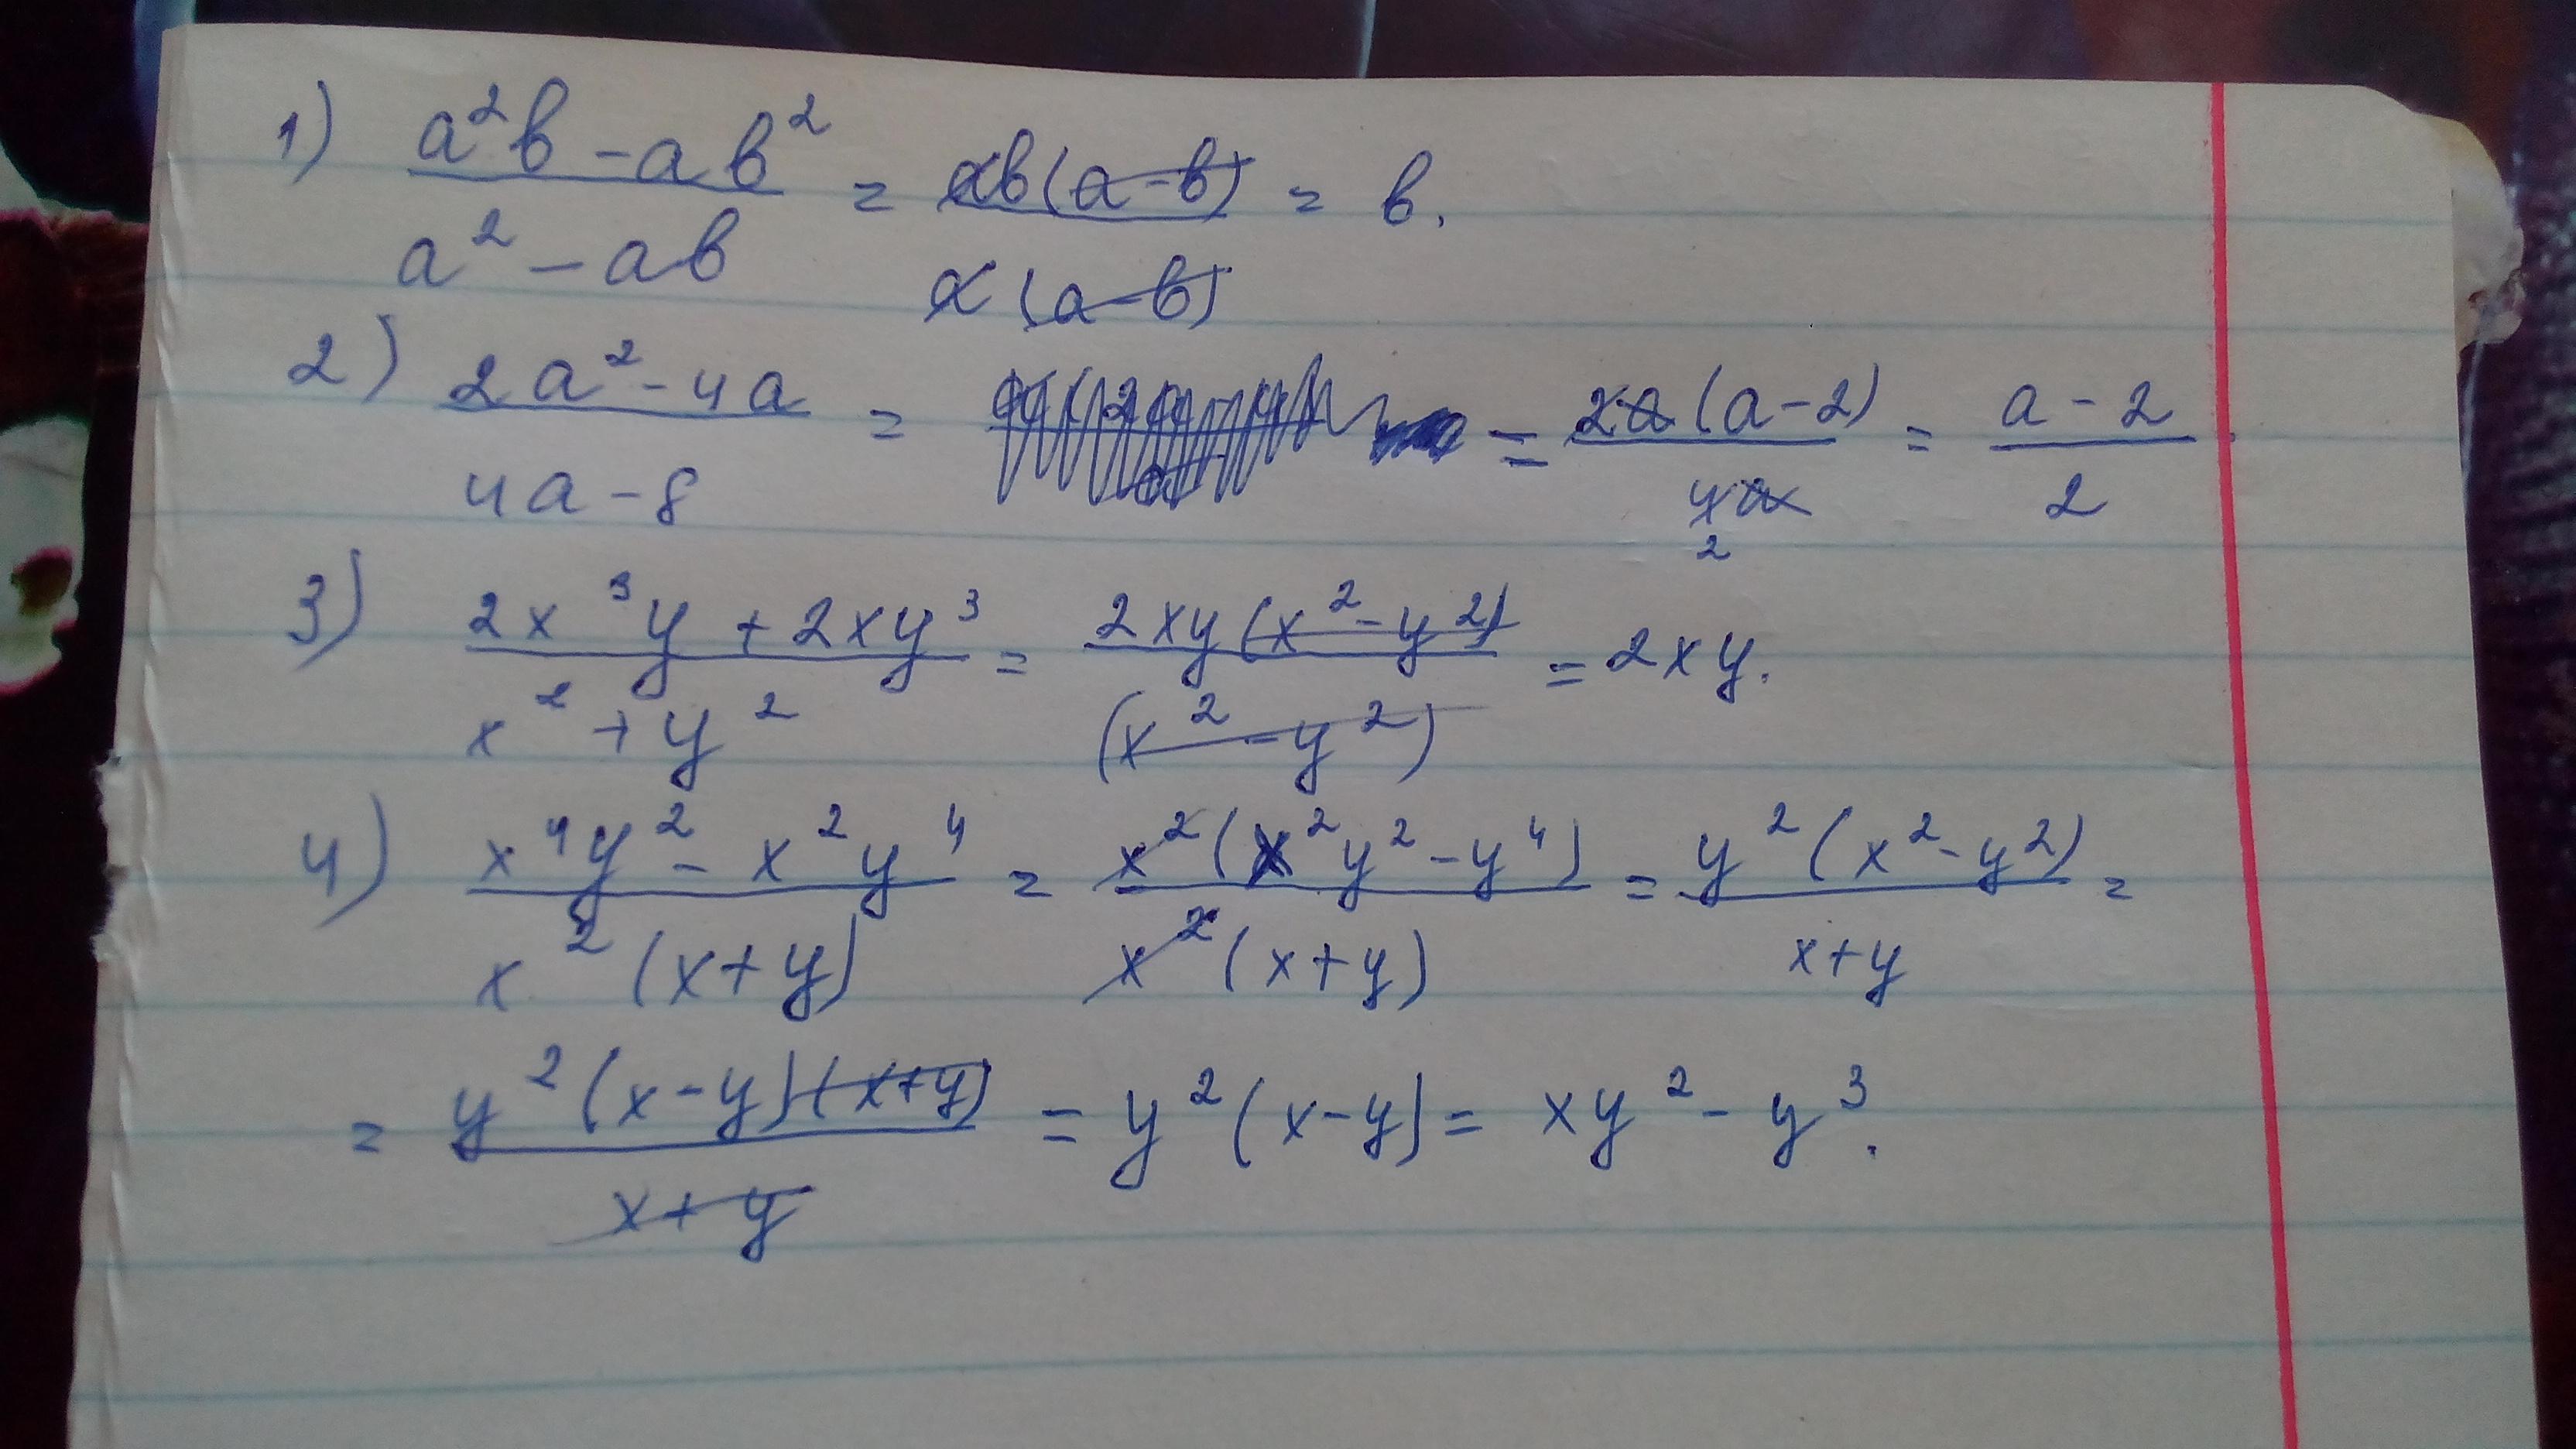 1) (a²b - ab²)/(a² - ab) = ab(a-b)/a(a-b) = b.
2) (2a² - 4a)/(4a - 8) = = 2a(a-2)/4a 2 = (a-2)/2
3) (2x³y + 2xy³)/(x² + y²) = 2xy(x²-y²)/(x²-y²) = 2xy.
4) (x⁴y² - x²y⁴)/x²(x+y) = x²(x²y²-y⁴)/x²(x+y) = y²(x²-y²)/(x+y) =
= y²(x-y)(x+y)/(x+y) = y²(x-y) = xy² - y³.